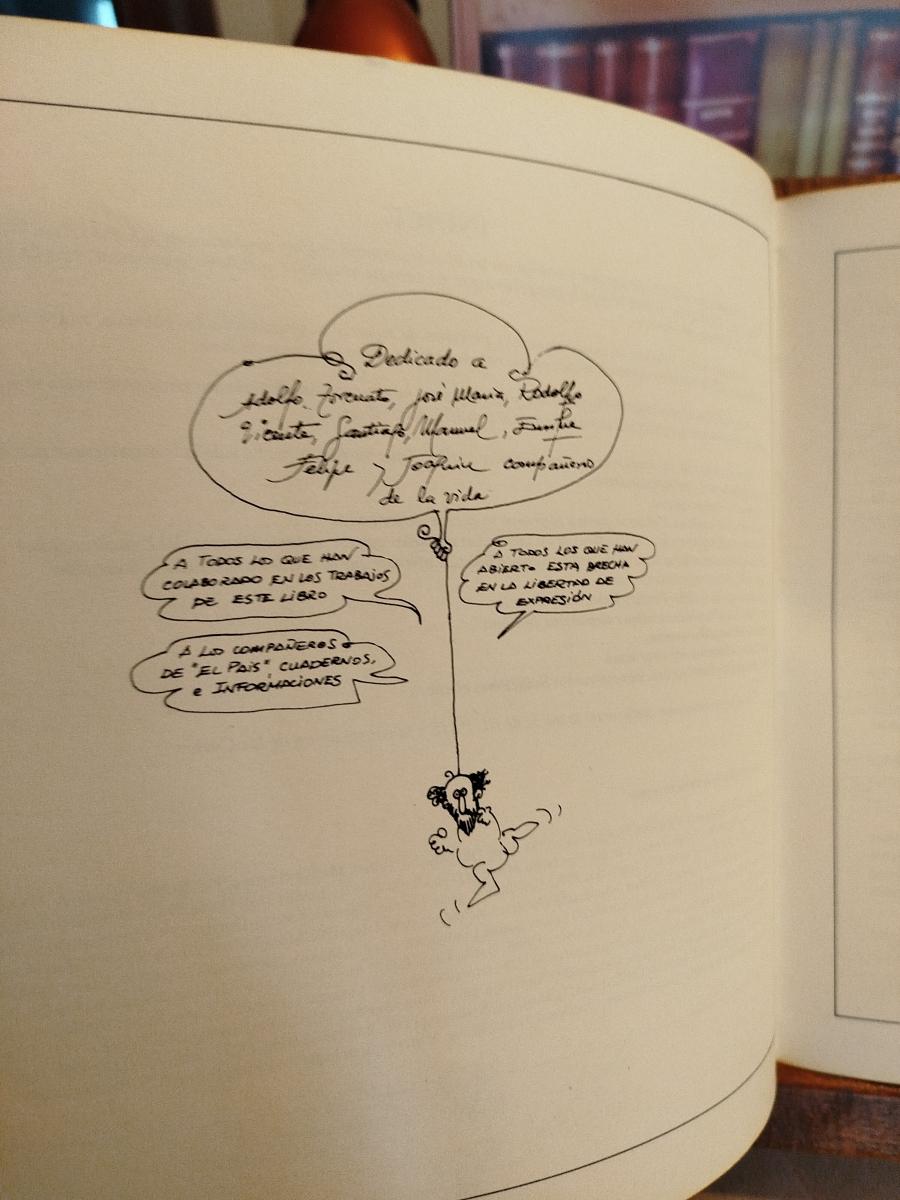 Dedicado a
Adolfo, Forcuato, José María, Rodolfo
Vicente, Santiago, Manuel, Enrique
Felipe y Joaquin compañeros
de la vida
A TODOS LO QUE HAN
COLABORADO EN LOS TRABAJOS
DE ESTE LIBRO
A TODOS LOS QUE HAN
ABIERTO ESTA BRECHA
EN LA LIBERTAD DE
EXPRESIÓN
A LOS COMPAÑEROS
DE "EL PAIS" CUADERNOS,
e INFORMACIONES